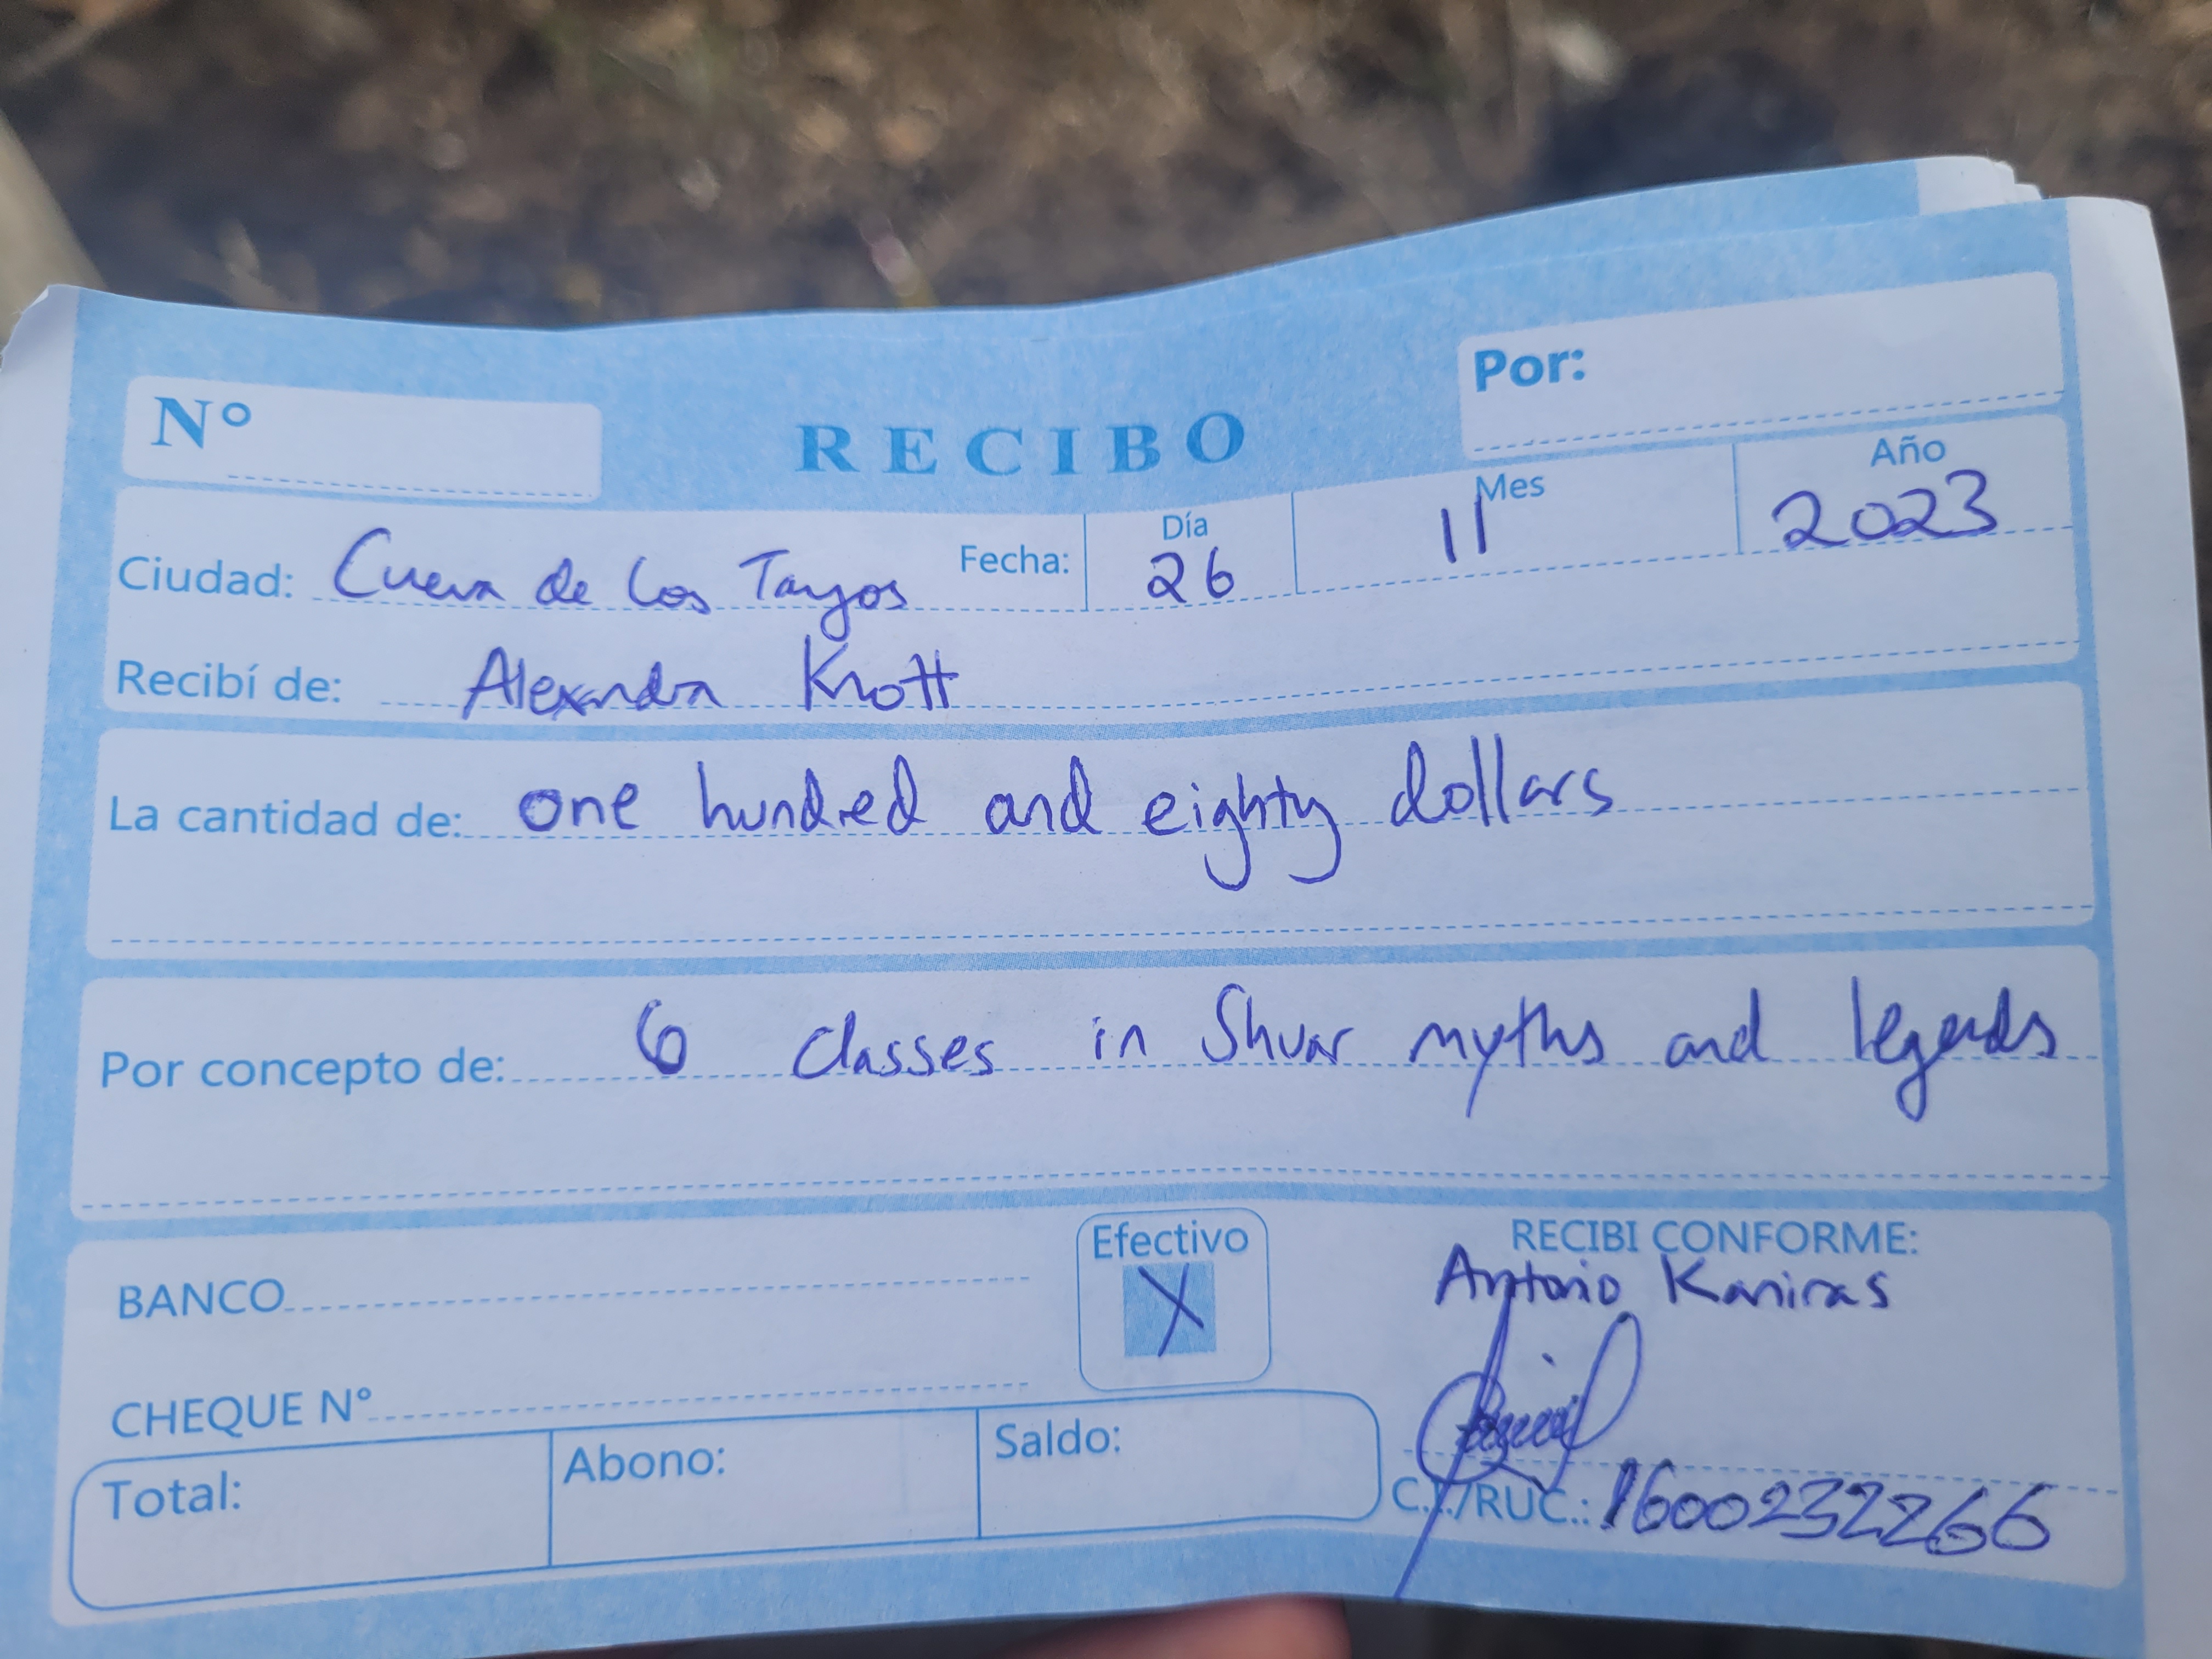 Nº
RECIBO
Por:
Ciudad: Cueva de Los Tayos Fecha: Día 26 Mes 11 Año 2023
Recibí de: Alexandra Krott
La cantidad de: one hundred and eighty dollars
Por concepto de: 6 classes in Shuar myths and legends
BANCO
Efectivo X
RECIBI CONFORME:
Antonio Kaniras
CHEQUE Nº
Total: Abono: Saldo:
C.I./RUC.: 1600232266